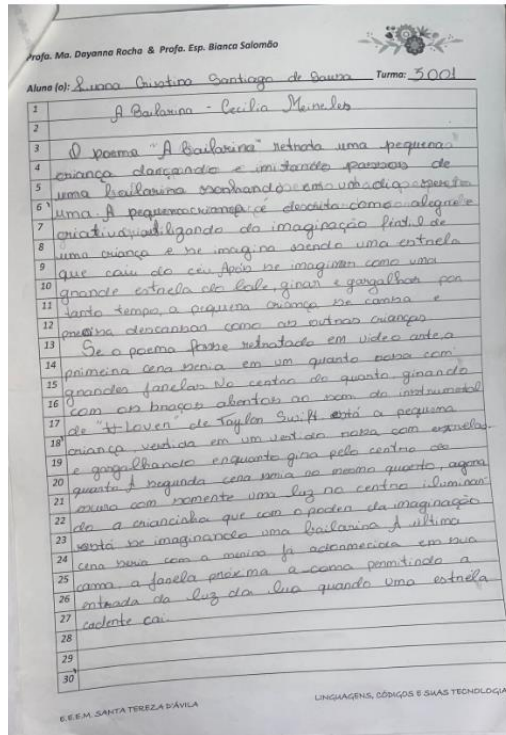 Profa. Ma. Dayanna Rocha & Profa. Esp. Bianca Salomão
Aluno (a): Luana Cristina Santiago de Souza Turma: 3001
1 A Bailarina - Cecilia Meireles
2
3 O poema "A bailarina" retrata uma pequena
4 criança dançando e imitando passos de
5 uma bailarina sonhando em um dia
6 uma. A pequena criança é descrita como alegre e
7 criativa, da imaginação fértil de
8 uma criança e se imagina sendo uma estrela
9 que caiu do céu. Após se imaginar como uma
10 grande estrela do bale, girar e gargalhar por
11 tanto tempo, a pequena criança se cansa e
12 precisa descansar como as outras crianças
13 Se o poema fosse retratado em video arte, a
14 primeira cena seria em um quarto rosa com
15 grandes janelas. No centro do quarto, girando
16 com os braços abertos ao som do instrumental
17 de de Taylor Swift está a pequena
18 criança, vestida em um vestido rosa com estrelas
19 e gargalhando enquanto gira pelo centro do
20 quarto. A segunda cena seria no mesmo quarto, agora
21 escuro com somente uma luz no centro iluminan-
22 do a criancinha que com o poder da imaginação
23 está se imaginando uma bailarina. A última
24 cena seria com a menina já adormecida em sua
25 cama, a janela próxima a cama permitindo a
26 entrada da luz da lua quando uma estrela
27 cadente cai.
28
29
30
E.E.E.M. SANTA TEREZA D'ÁVILA
LINGUAGENS, CÓDIGOS E SUAS TECNOLOGIA